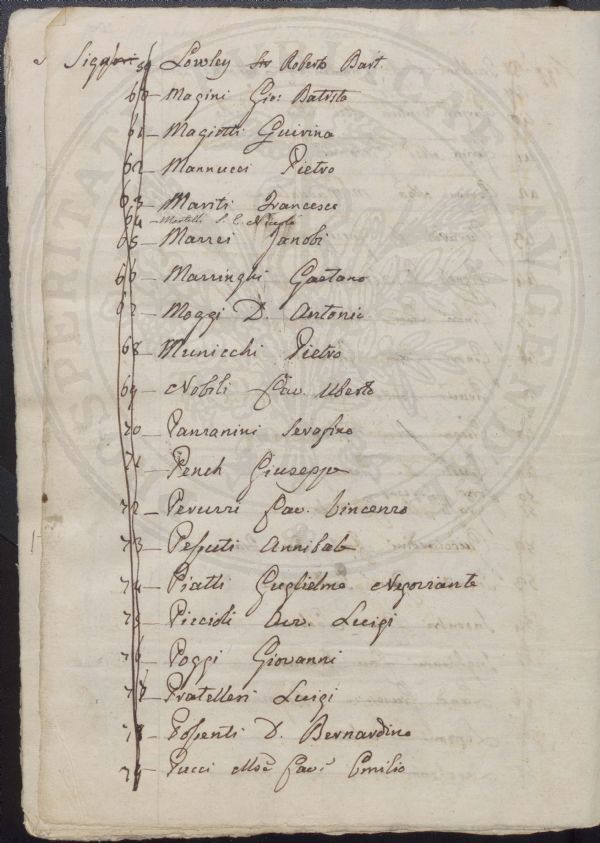 Signori 59 Lowley Sir Roberto Bart.
60 — Magini Gio: Batista
61 — Magiotti Guirina
62 — Mannucci Pietro
63 — Mariti Francesco
64 — Martelli S. C. Nicolò
65 — Marzei Zanobi
66 — Marzinghi Gaetano
67 — Moggi D. Antonio
68 — Municchi Pietro
69 — Nobili Cav. Uberto
70 — Panzanini Serafino
71 — Pench Giuseppe
72 — Peruzzi Cav. Vincenzo
73 — Pessuti Annibale
74 — Piatti Guglielmo Negoziante
75 — Piccioli Avv. Luigi
76 — Poggi Giovanni
77 — Pratellesi Luigi
78 — Possenti D. Bernardino
79 — Pucci Cav. Emilio